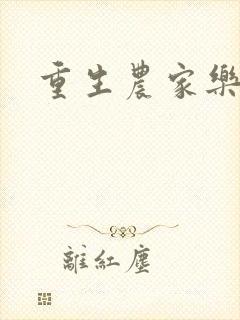 重生農家樂
離紅塵